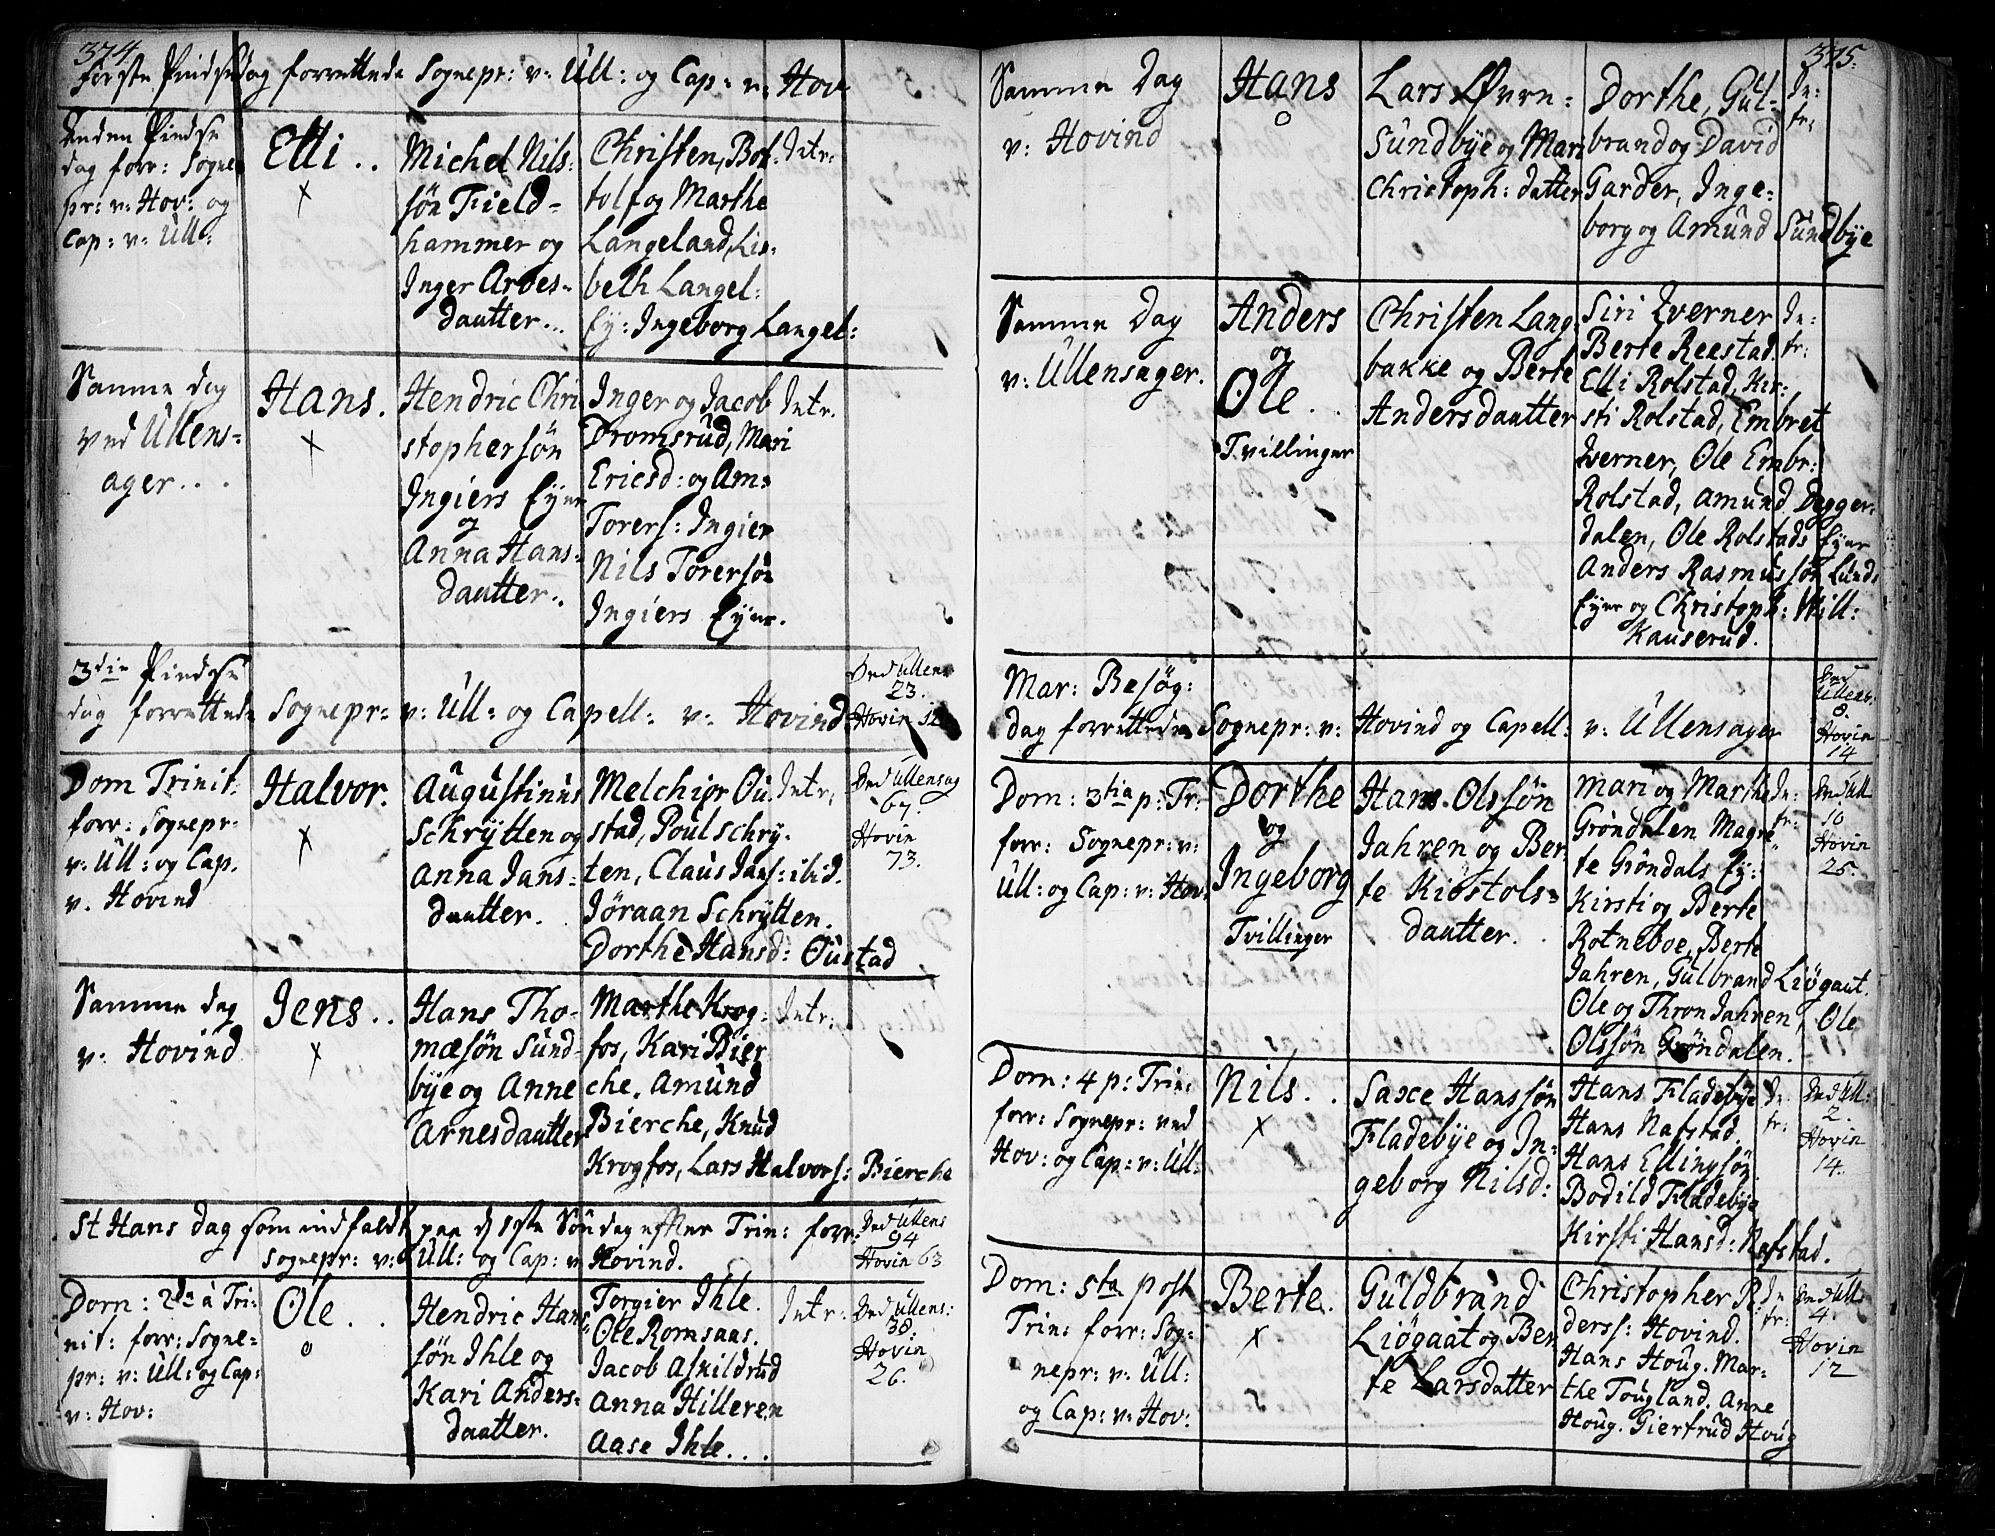 374.
første Pindsedag forrettede Sognepr: v: Ull: og Cap: v: Hov
Anden Pindse
dag forr: Sogne
pr: v: Hov: og
Cap: v: Ull:
Elli . .
Michel Nils=
søn Field=
hammer og
Inger Arves=
dautter...
Christen, Bot=
tolf og Marthe
Langeland, Lis=
beth Langel:
Ey: Ingeborg Langel:
Intr:
Samme dag
ved Ullens=
ager. . .
Hans.
Hendric Chri
stophersøn
Ingiers Eyer
og
Anna Hans=
dautter..
Inger og Jacob
Dromsrud, Mari
Ericsd: og Am=
Torers: Ingier
Nils Torersøn
Ingiers Eyer.
Intr.
3die Pindse
dag forrettede Sognepr: v: Ull: og Capell: v: Hovind
Ved Ullens
23.
Hovin 12
Dom Trinit.
forr: Sognepr:
v: Ull: og Cap.
v. Hovind
Halvor.
Augustinus
Schrytten og
Anna Jans=
dautter.
Melchior Ou
stad, Poul Schry=
ten, Claus Jans: ibid.
Jøraan Schrytten.
Dorthe Hansd: Oustad
Intr.
Ved Ullensag
67.
Hovin
73.
Samme dag
v: Hovind
Jens . .
Hans Tho=
mæsøn Sund=
bye og Anne
Arnesdautter
Marthe Krog=
fos, Kari Bier
che, Amund
Bierche, Knud
Krogfos, Lars Halvors: Bierche
Intr.
St Hans dag som indfaldt paa d 1ste Søndag efter Trin: forr:
Sognepr: v: Ull: og Cap: v Hovind.
Ved Ullens
94
Hovin 63
Dom: 2da à Tri=
nit: forr: Sogne=
pr: v: Ull: og Cap:
v: Hov:
Ole . .
Hendric Hans
søn Ihle og
Kari Anders=
dautter.
Torgier Ihle.
Ole Romsaas.
Jacob Askildrud
Anna Hilleren
Aase Ihle . . .
Intr:
Ved Ullens:
38.
Hovin
26.
375.
Samme Dag
v: Hovind
Hans
Lars Øvre=
Sundbye og Mari
Christoph: datter
Dorthe, Gul=
brand og David
Garder, Inge=
borg og Amund Sundbye
In:
tr:
Samme Dag
v: Ullensager.
Anders
og
Ole . .
Tvillinger
Christen Lang
bakke og Berte
Andersdautter
Siri Iverner
Berte Reestad.
Elli Rolstad, Kir=
sti Rolstad, Embret
Iverner, Ole Embr:
Rolstad, Amund Degger=
dalen, Ole Rolstads Eyer
Anders Rasmussøn Lunds
Eyer og Christoph: Will:
Kauserud.
In:
tr:
Mar: Besøg:
dag forrettede Sognepr: v: Hovind og Capell: v: Ullensager
Ved
Ullens:
8.
Hovin
14
Dom: 3tia p: Tr:
forr: Sognepr: v:
Ull: og Cap: v: Hov:
Dorthe
og
Ingeborg
Tvillinger
Hans Olssøn
Jahren og Ber
te Kiostols=
dautter.
Mari og Marthe
Grøndalen Magre
te Grøndals Ey:
Kirsti og Berte
Rotneboe, Berte
Jahren, Gulbrand Liøgaat.
Ole og Thron Jahren, Ole
Olssøn Grøndalen.
In:
tr:
Ved Ull
10
Hovin
25.
Dom: 4 p: Trin:
forr: Sognepr: ved
Hov: og Cap: v: Ull:
Nils. .
Saxe Hanssøn
Fladebye og In=
geborg Nilsd:
Hans Fladebye
Hans Nafstad.
Hans Ellingsøn
Bodild Fladebye
Kirsti Hansd: Nafstad.
In:
tr:
Ved Ull:
2.
Hovin
14.
Dom: 5ta post
Trin: forr: Sog=
nepr: v: Ull:
og Cap: v: Hov:
Berte.
Guldbrand
Liøgaat og Ber
te Larsdatter
Christopher P:
derss: Hovind.
Hans Houg. Mar=
the Tougland. Anne
Houg. Giertrud Houg
In
tr:
Ved Ull:
4.
Hovin
12